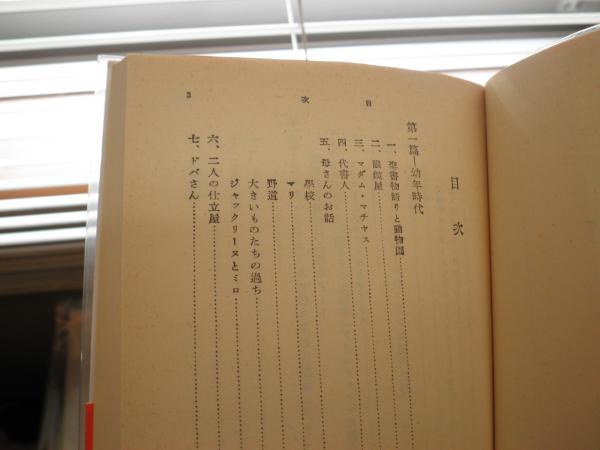 目次
3
目次
第一篇―幼年時代
一、聖書物語りと動物園
二、眼鏡屋
三、マダム・マチヤス
四、代書人
五、母さんのお話
學校
マリ
野道
大きいものたちの過ち
ジャックリーヌとミロ
六、二人の仕立屋
七、ドベさん